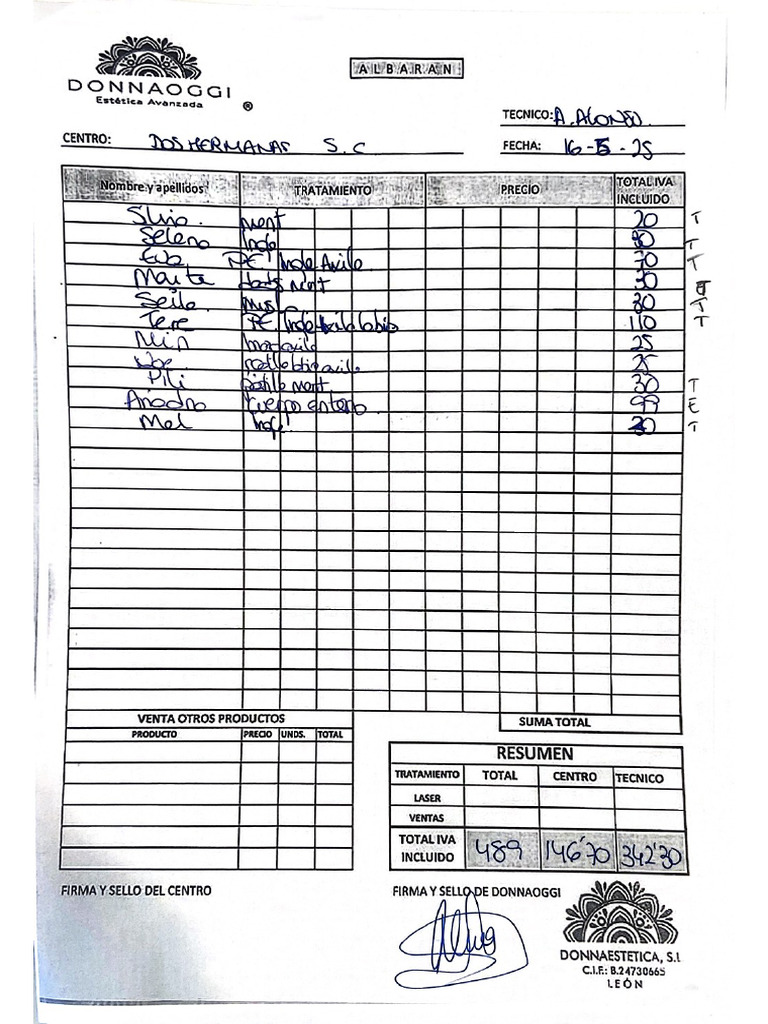 DONNAOGGI
Estética Avanzada ®
ALBARAN
TECNICO: A. ALONSO.
CENTRO: DOS HERMANAS S.C
FECHA: 16-5-25
Nombre y apellidos TRATAMIENTO PRECIO TOTAL IVA INCLUIDO
ment 20 T
Selena Ingle T
Eva PE Ingle Axila 70 T
Maite ment 30
Seila 30 T
Tere PE. Ingle labio 110 T
25
axila 25
Pili ment 30 T
Cuerpo entero 99 E
Mel Ingl T
VENTA OTROS PRODUCTOS
PRODUCTO PRECIO UNDS. TOTAL
SUMA TOTAL
RESUMEN
TRATAMIENTO TOTAL CENTRO TECNICO
LASER
VENTAS
TOTAL IVA INCLUIDO 489 146'70 342'30
FIRMA Y SELLO DEL CENTRO
FIRMA Y SELLO DE DONNAOGGI
DONNAESTETICA, S.L
C.I.F.: B.24730665
LEÓN